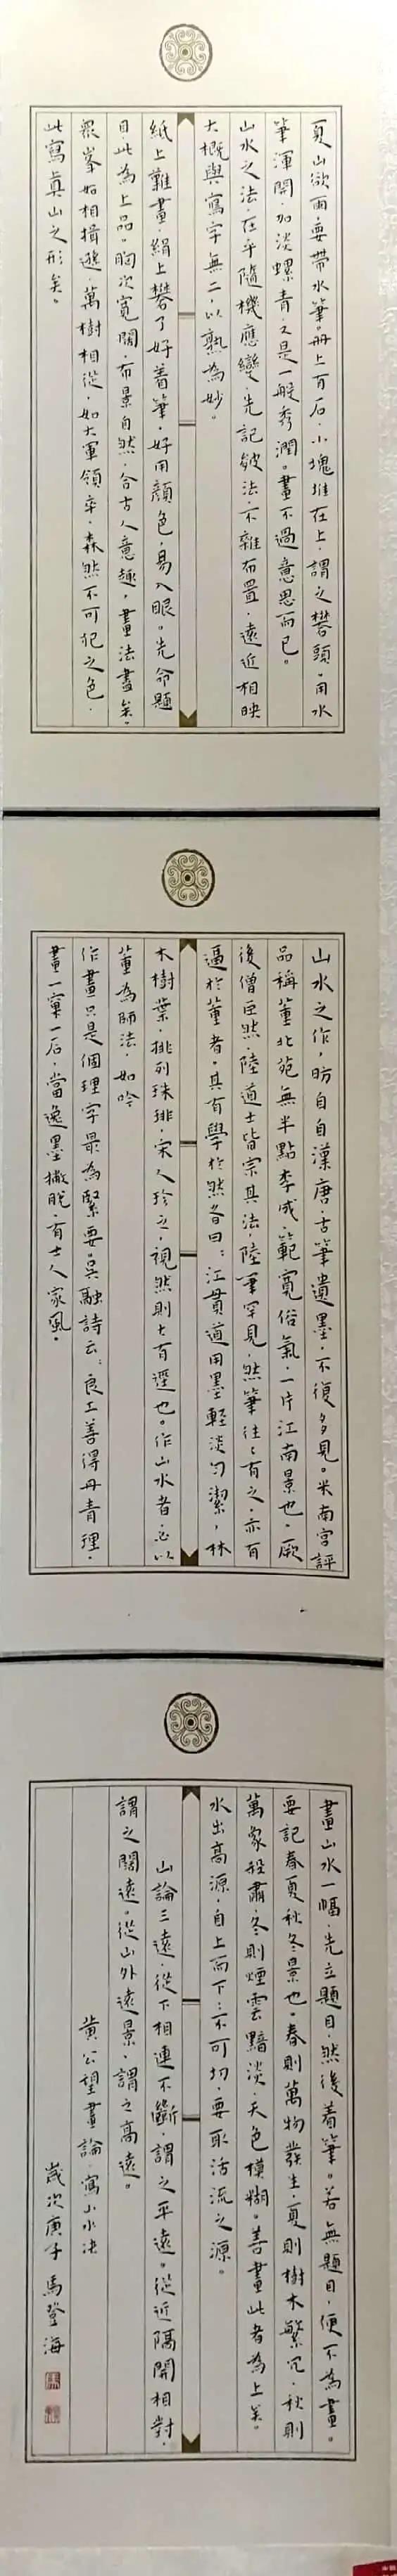 夏山欲雨、要帶水筆。册上有石、小塊堆在上、謂之礬頭、用水
筆渾開、加淡螺青、又是一般秀潤。畫不過意思而已。
山水之法、在乎隨機應變、先記皴法、不雜布置、遠近相映
大概與寫字無二、以熟為妙。
紙上難畫、絹上礬了好着筆、好用顏色、易入眼。先命題
目、此為上品。胸次寬闊、布景自然、合古人意趣、畫法盡矣。
衆峯如相揖遜、萬樹相從、如大軍領卒、森然不可犯之色、
此寫真山之形矣。
山水之作，昉自自漢唐、古筆遺墨、不復多見。米南宮評
品稱董北苑無半點李成、範寬俗氣、一片江南景也、厥
後僧巨然、陸道士皆宗其法、陸筆罕見、然筆往々有之、亦有
逼於董者。其有學於然者曰：江貫道用墨輕淡勻潔，林
木樹葉、排列珠排、宋人珍之、視然則七百逕也。作山水者、必以
董為師法、如吟
作畫只是個理字最為緊要。吳融詩云：良工善得丹青理、
畫一窠一石、當逸墨撇脫、有士人家風、
畫山水一幅、先立題目、然後着筆。若無題目、便不為畫。
要記春夏秋冬景也、春則萬物發生、夏則樹木繁冗、秋則
萬象殺肅、冬則煙雲黯淡、天色模糊。善畫此者為上矣。
水出高源、自上而下：不可切、要取活流之源。
山論三遠、從下相連不斷、謂之平遠。從近隔開相對、
謂之闊遠。從山外遠景、謂之高遠。
黄公望畫論、寫山水决
歲次庚子 馬登海